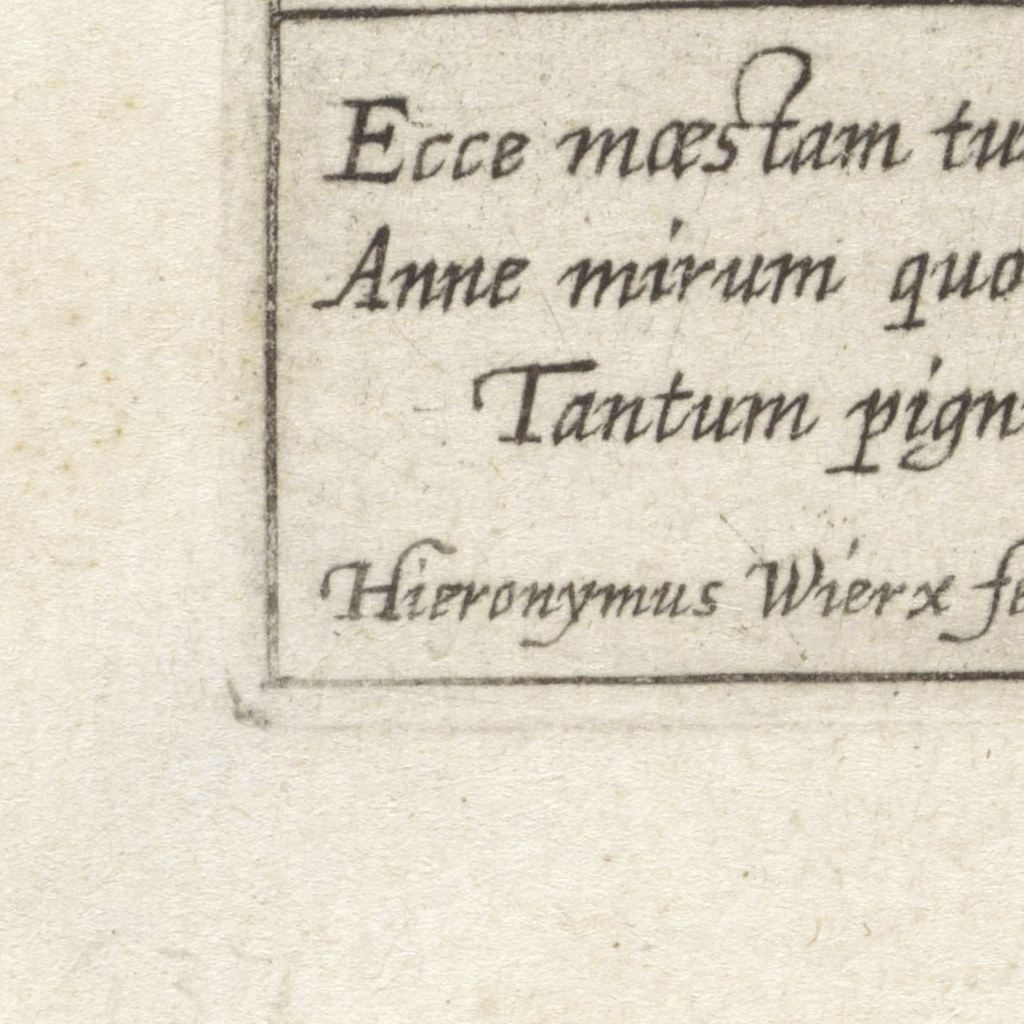 Ecce mœstam tu
Anne mirum quo
Tantum pign
Hieronymus Wierx fe